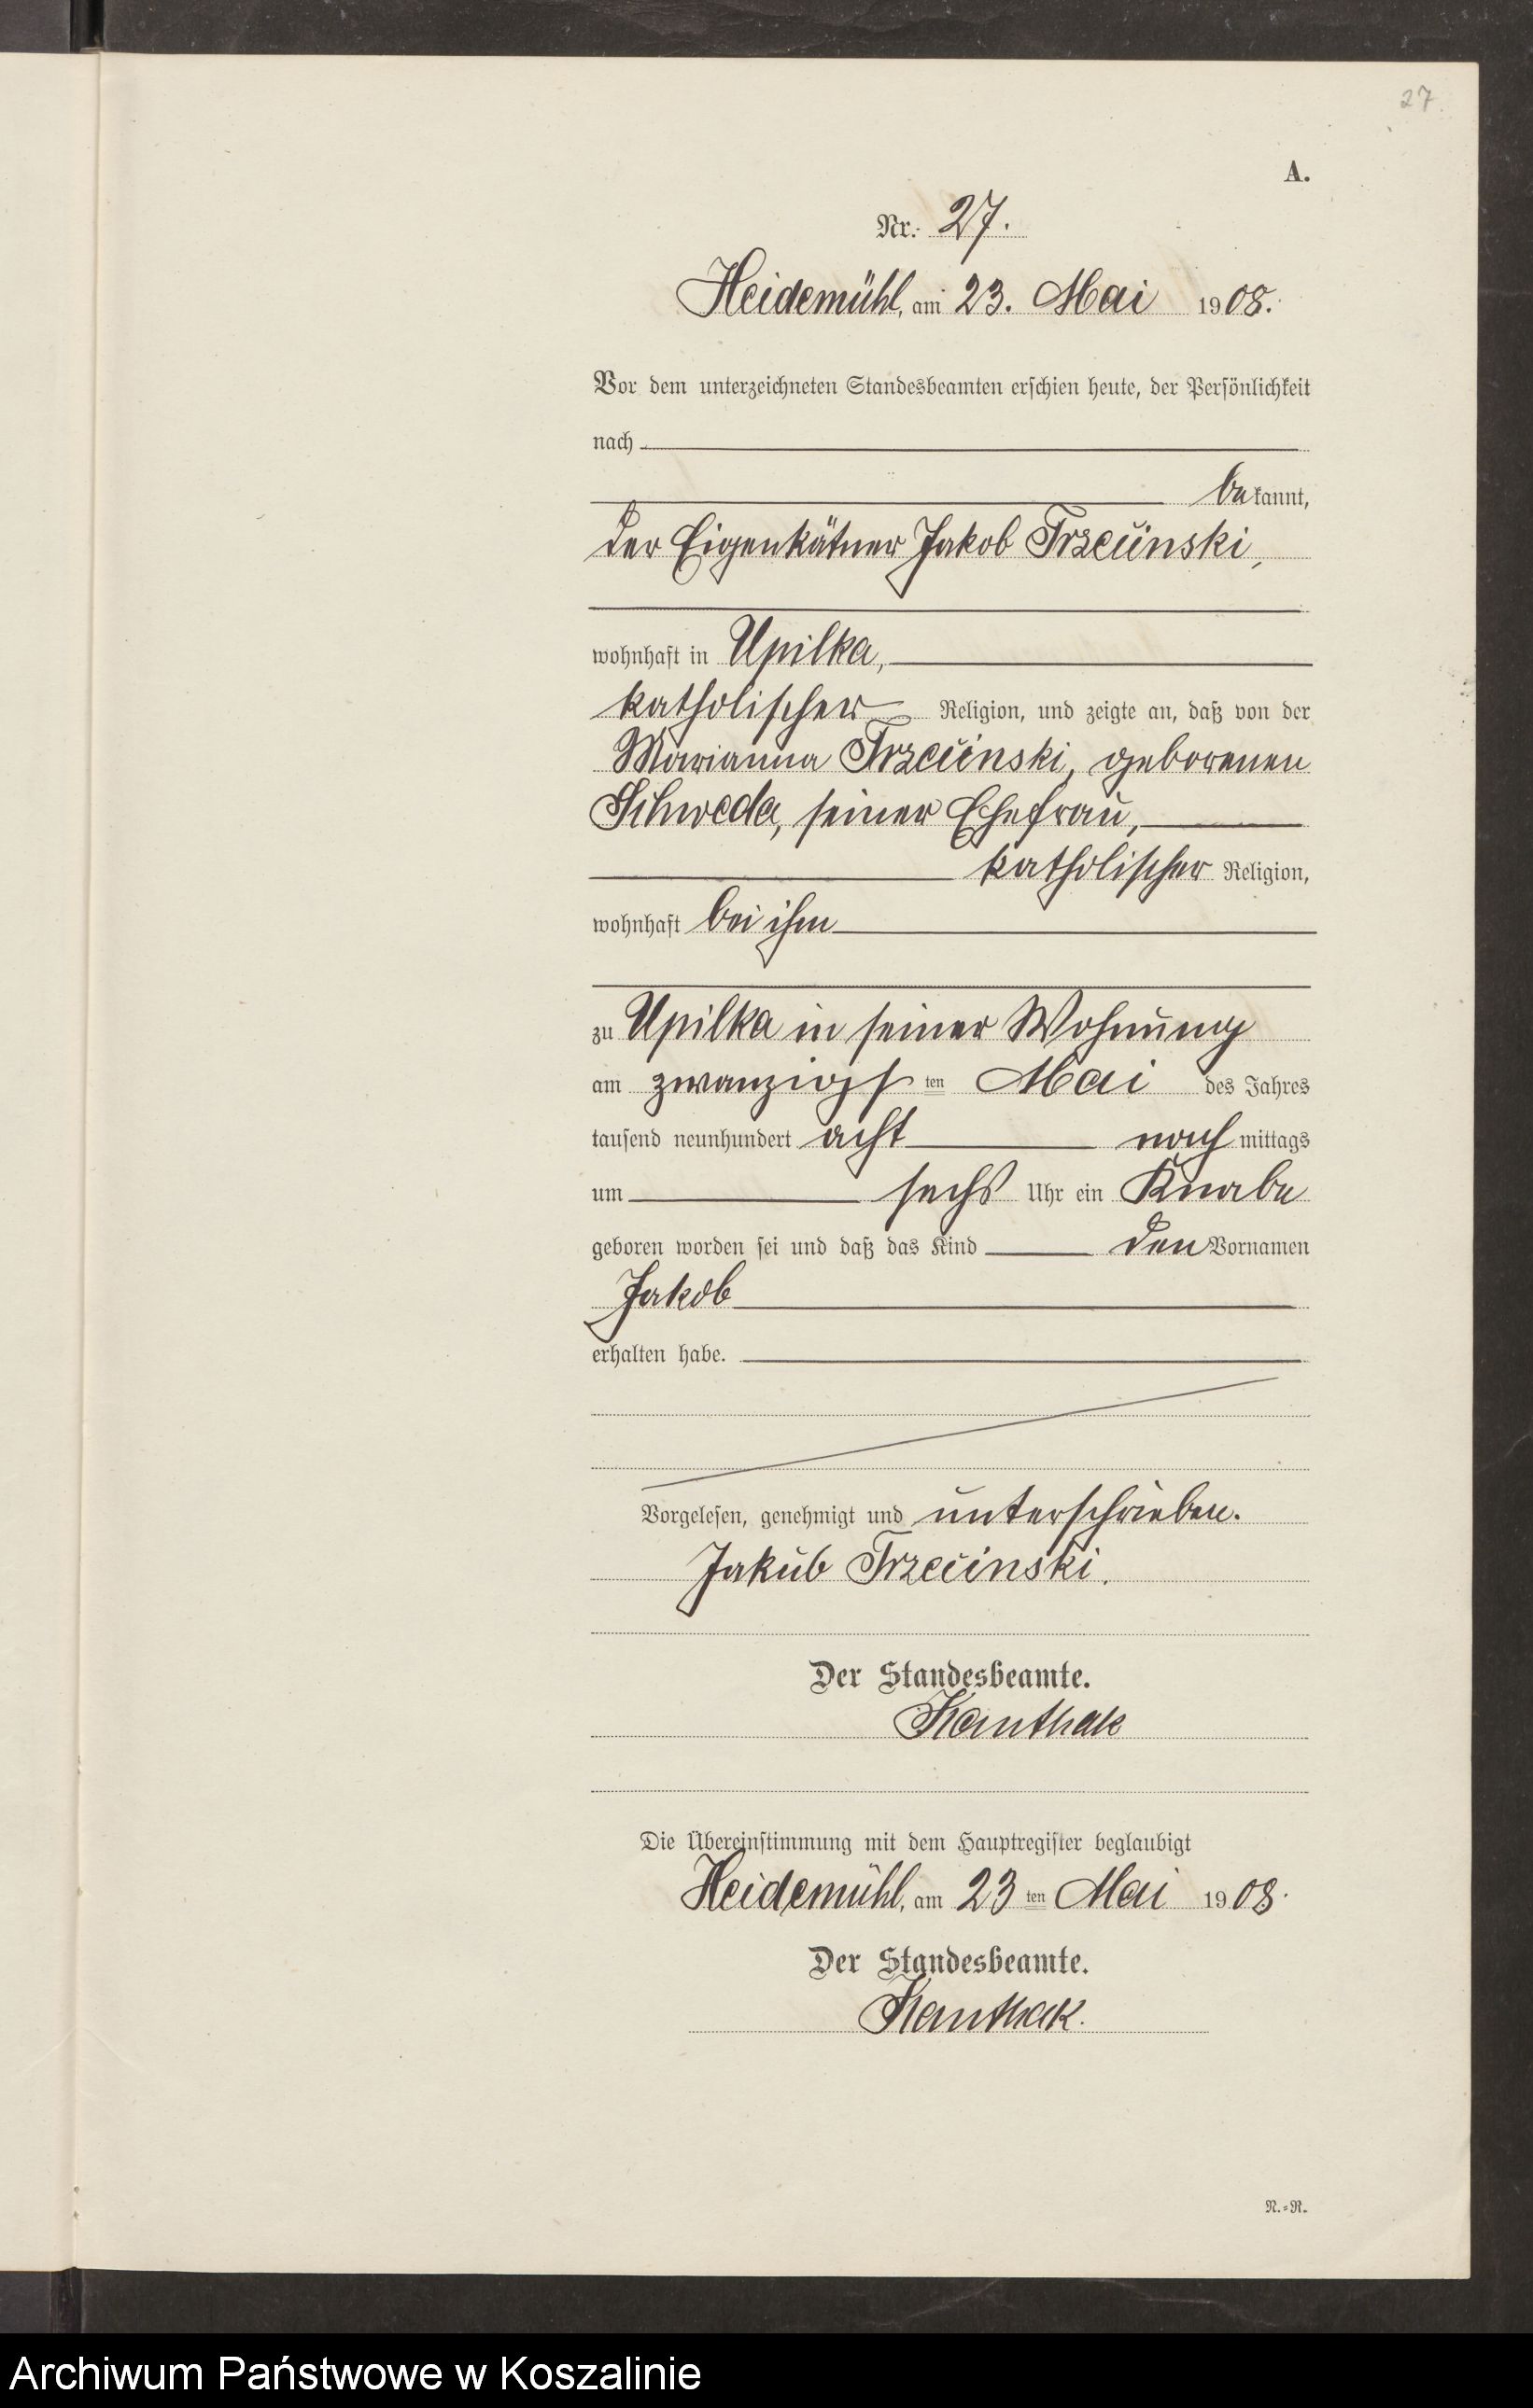 27.
A.
Nr. 27.
Heidemühl, am 23. Mai 1908.
Vor dem unterzeichneten Standesbeamten erschien heute, der Persönlichkeit
nach
bekannt,
der Eigenkätner Jakob Trzecinski,
wohnhaft in Upilka,
katholischer Religion, und zeigte an, daß von der
Marianna Trzecinski, geborenen
Schweda, seiner Ehefrau,
katholischer Religion,
wohnhaft bei ihm
zu Upilka in seiner Wohnung
am zwanzigsten Mai des Jahres
tausend neunhundert acht nachmittags
um sechs Uhr ein Knabe
geboren worden sei und daß das Kind den Vornamen
Jakob
erhalten habe.
Vorgelesen, genehmigt und unterschrieben.
Jakub Trzecinski.
Der Standesbeamte.
Kanthak
Die Übereinstimmung mit dem Hauptregister beglaubigt
Heidemühl, am 23ten Mai 1908.
Der Standesbeamte.
Kanthak.
N.=R.
Archiwum Państwowe w Koszalinie